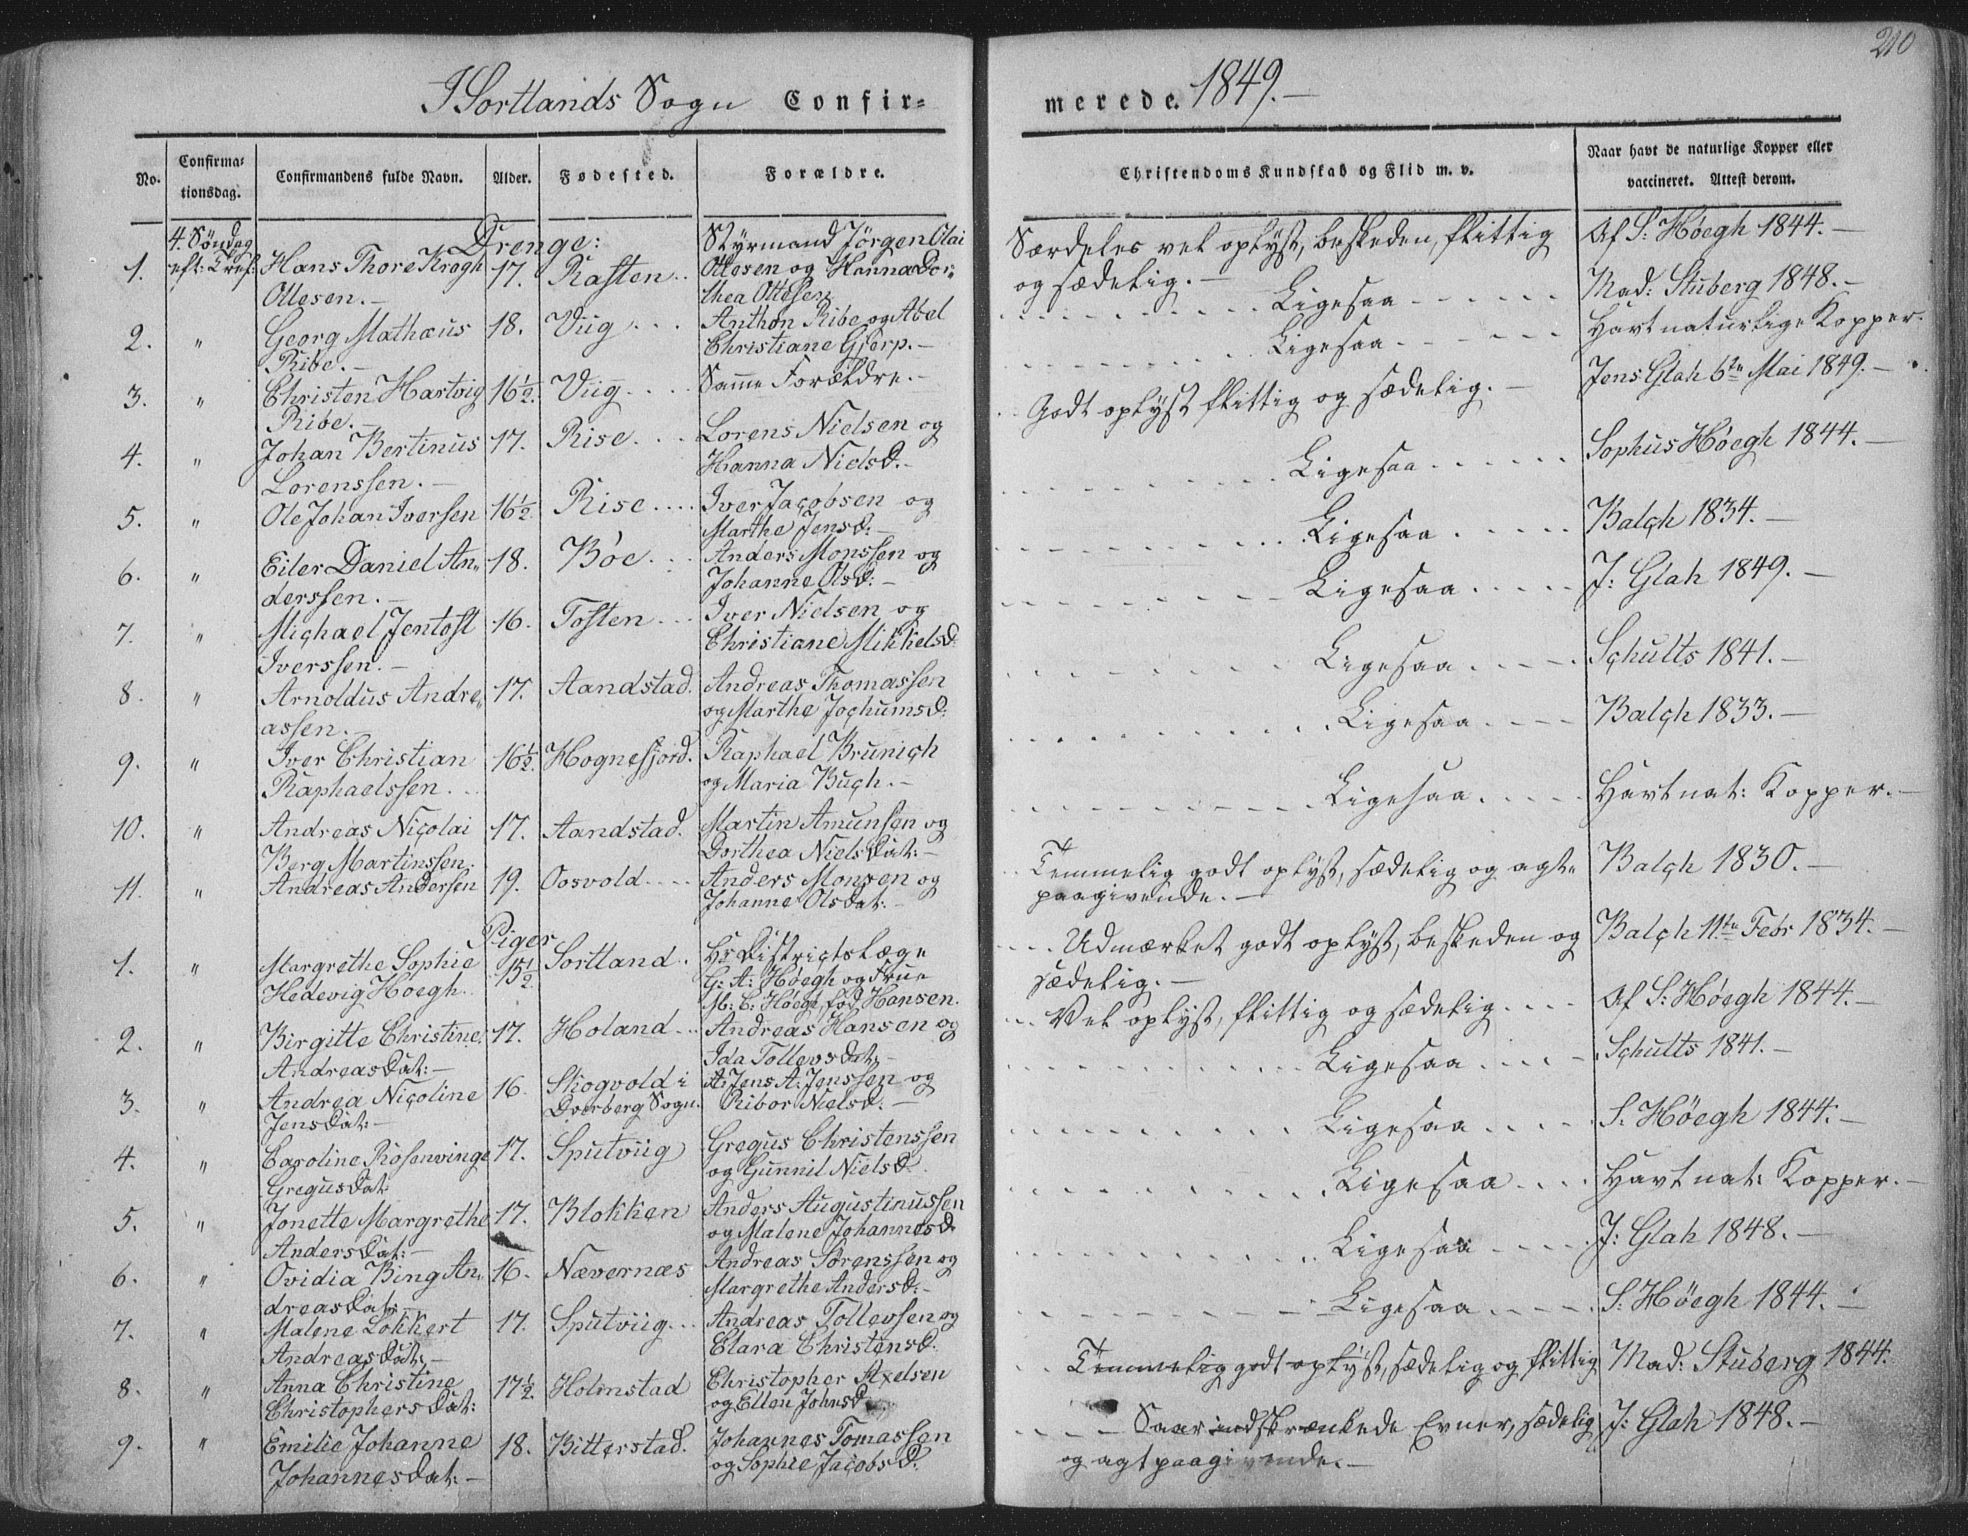 210
I Sortlands Sogn Confir-
merede. 1849.-
No.
Confirma-
tionsdag.
Confirmandens fulde Navn.
Alder.
Fødested.
Forældre.
Christendoms Kundskab og Flid m. v.
Naar havt de naturlige Kopper eller
vaccineret. Attest derom.
Drenge:
4. Søndag Styrmand Jörgen Olai Særdeles vel oplyst, beskeden, flittig Af S: Høegh 1844.-
1. eft: Tref: Hans Thore Krogh 17. Rasten.. Ottesen og Hanna Dor- og sædelig.-
Ottesen.- thea Ottesen
2. " Georg Mathæus 18. Viig... Anthon Ribe og Abel Ligesaa Mad: Stuberg 1848.-
Ribe.- Christiane Gjerp.-
3. " Christen Hartvig 16½. Viig.... Samme Forældre.- Ligesaa Havt naturlige Kopper.
Ribe.-
4. " Johan Bertinus 17. Rise.... Lorens Nielsen og Godt oplyst flittig og sædelig.- Jens Glah 6te Mai 1849.-
Lorenssen.- Hanna NielsD.-
5. " Ole Johan Iversen 16½. Rise.... Iver Jacobsen og Ligesaa Sophus Høegh 1844.-
Marthe JensD:-
6. " Eiler Daniel An- 18. Böe.... Anders Monssen og Ligesaa Balch 1834.-
derssen.- Johanne OlsD:-
7. " Michael Jentoft 16. Tosten... Iver Nielsen og Ligesaa J: Glah 1849.-
Iverssen.- Christiane MikkelsD:
8. " Arnoldus Andre- 17. Aandstad. Andreas Thomassen Ligesaa Schults 1841.-
assen. og Marthe JochumsD:
9. " Iver Christian 16½ Hognefjord. Raphael Brunich Ligesaa Balch 1833.-
Raphaelssen... og Maria Buch.-
10. " Andreas Nicolai 17. Aandstad. Martin Amunsen og Ligesaa Havt nat: Kopper.-
Berg Martinssen. Dorthea NielsDat:-
11. " Andreas Andersen 19. Oosvold.... Anders Monsen og Temmelig godt oplyst, sædelig og agt- Balch 1830.-
Johanne OlsDat:- paagivende.-
Piger
1. " Margrethe Sophie 15½ Sortland.. Hr Districtslæge Udmærket godt oplyst, beskeden og Balch 11te Febr 1834.-
Hedevig Høegh. G: A: Høegh og Frue sædelig.-
M: C: Høegh, fød Hansen.
2. " Birgitte Christine 17. Holand... Andreas Hansen og Vel oplyst, flittig og sædelig... Af S: Høegh 1844.-
AndreasDat:- Ida TollevsDat:-
3. " Andrea Nicoline 16. Skogvold i Jens A: Jenssen og Ligesaa Schults 1841.-
JensDat:- Dverberg Sogn. Ribor NielsD.-
4. " Caroline Rosenvinge 17. Sputviig Gregus Christenssen Ligesaa S: Høegh 1844.-
GregusDat: og Gunnil NielsD.
5. " Jonette Margrethe 17. Blokken Anders Augustinussen Ligesaa Havt nat: Kopper.-
AndersDat:- og Malene JohannesD
6. " Ovidia Bing An- 16. Nævernæs Andreas Sörenssen og Ligesaa J: Glah 1848.-
dreasDat: Margrethe AndersD:-
7. " Malene Lokkert 17. Sputviig... Andreas Tollevsen og Ligesaa S: Høegh 1844.
AndreasDat.- Clara ChristensD.
8. " Anna Christine 17½ Holmstad Christopher Axelsen Temmelig godt oplyst, sædelig og flittig Mad: Stuberg 1844.
ChristophersDat: og Ellen JohnsD
9. " Emilie Johanne 18. Bitterstad. Johannes Tomassen Saare indskrænkede Evner, sædelig J: Glah 1848.-
JohannesDat:- og Sophie JacobsD. og agtpaagivende.-